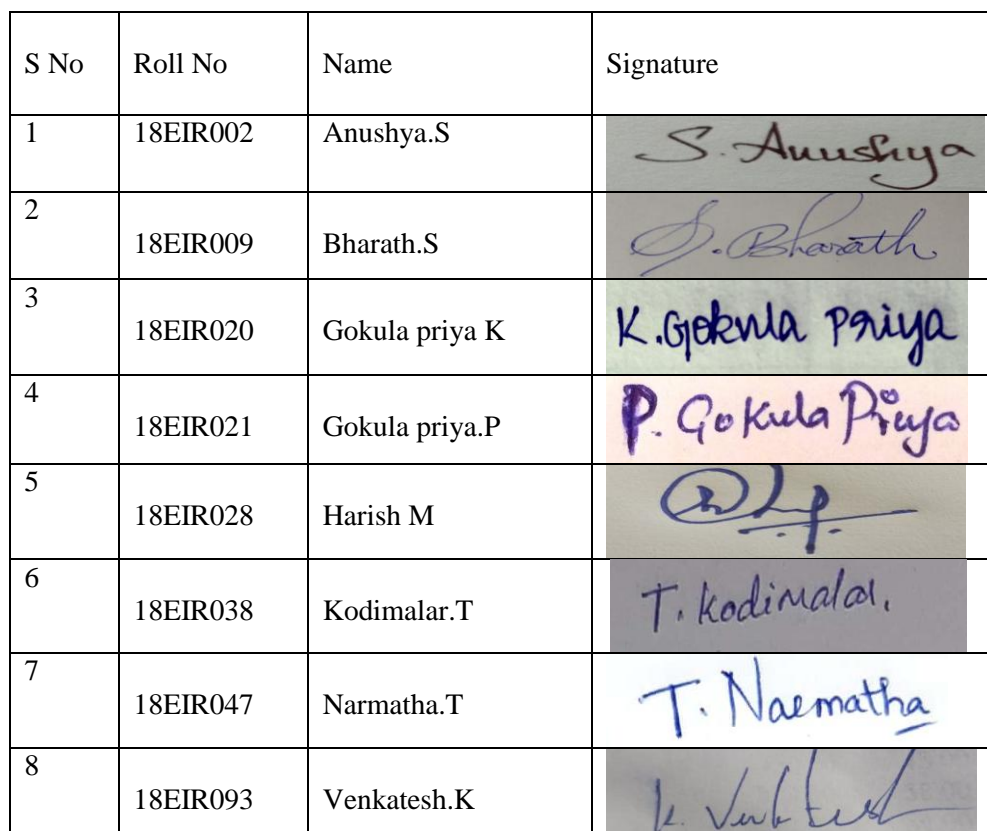 S No Roll No Name Signature
1 18EIR002 Anushya.S S. Anushya
2
18EIR009 Bharath.S S. Bharath
3
18EIR020 Gokula priya K K. Gokula priya
4
18EIR021 Gokula priya.P P. Gokula Priya
5
18EIR028 Harish M
6
18EIR038 Kodimalar.T T. Kodimalar.
7
18EIR047 Narmatha.T T. Narmatha
8
18EIR093 Venkatesh.K K. Venkatesh